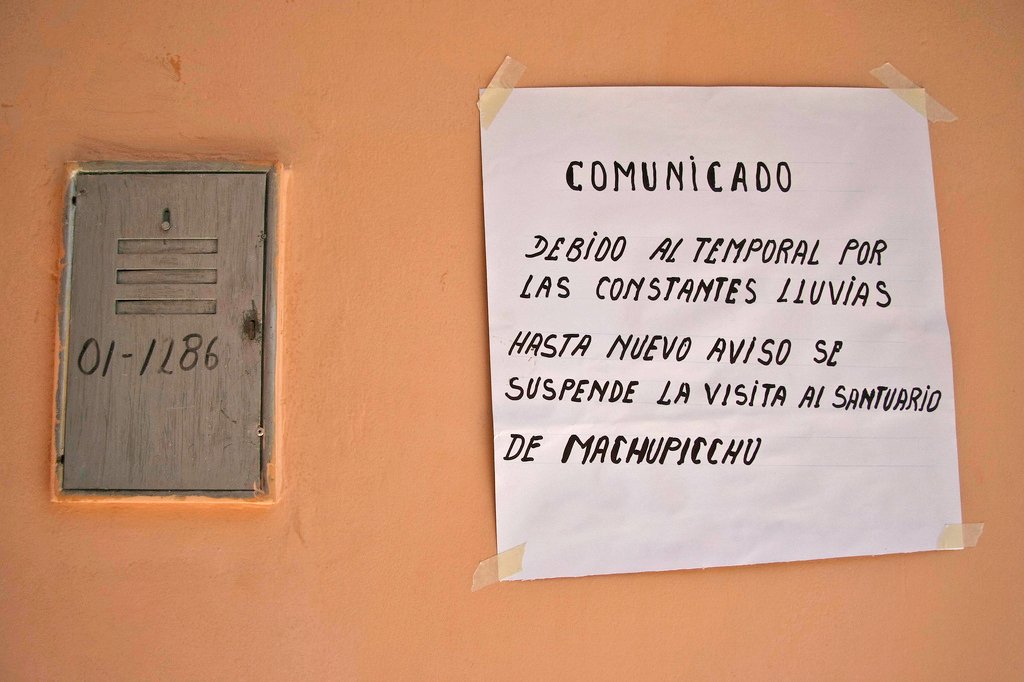 COMUNICADO
DEBIDO AL TEMPORAL POR
LAS CONSTANTES LLUVIAS
HASTA NUEVO AVISO SE
SUSPENDE LA VISITA AL SANTUARIO
DE MACHUPICCHU
01-1286